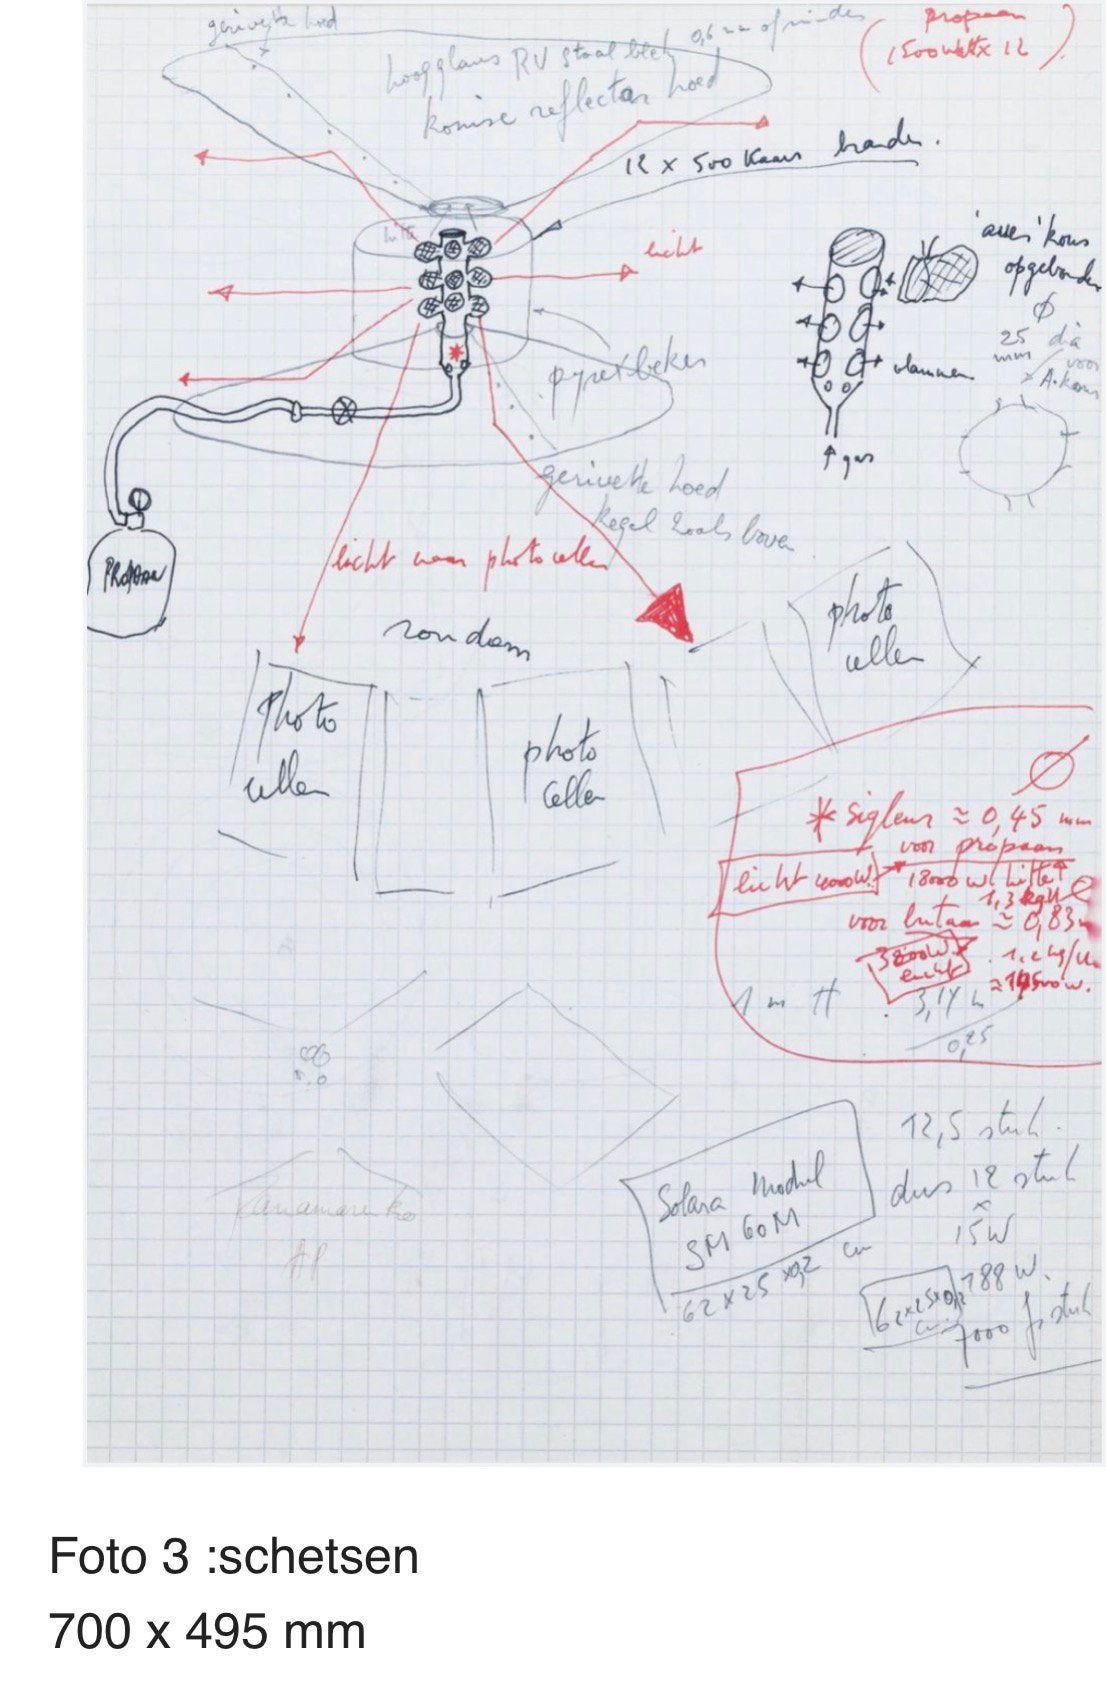 gerivette hoed
hoogglans RV staal blek 0,6 mm of minder
konise reflector hoed
propaan
(1500 watt x 12)
12 x 500 Kaars brander.
hitte
licht
pyrex beker
'auer' kous
opgebonden
Ø
25 dia
mm voor
A. kous
vlammen
↑ gas
gerivette hoed
kegel zoals boven
PROPAAN
licht naar photocellen
rondom
photo
cellen
photo
cellen
photo
cellen
Ø
* sigleur ≈ 0,45 mm
voor propaan
licht 4000W. 18000 W hitte
1,3 kg/u
voor butaan ≈ 0,83
3800W. 1.2 kg/u
1 m H 3,14 m
0,25
12,5 stuk.
dus 12 stuk
x
15W
188 W.
7000 fr stuk
Solara Modul
SM 60M
62 x 25 x 0,2 cm
62x25x0,2
cm
Panamarenko
AP
Foto 3 :schetsen
700 x 495 mm